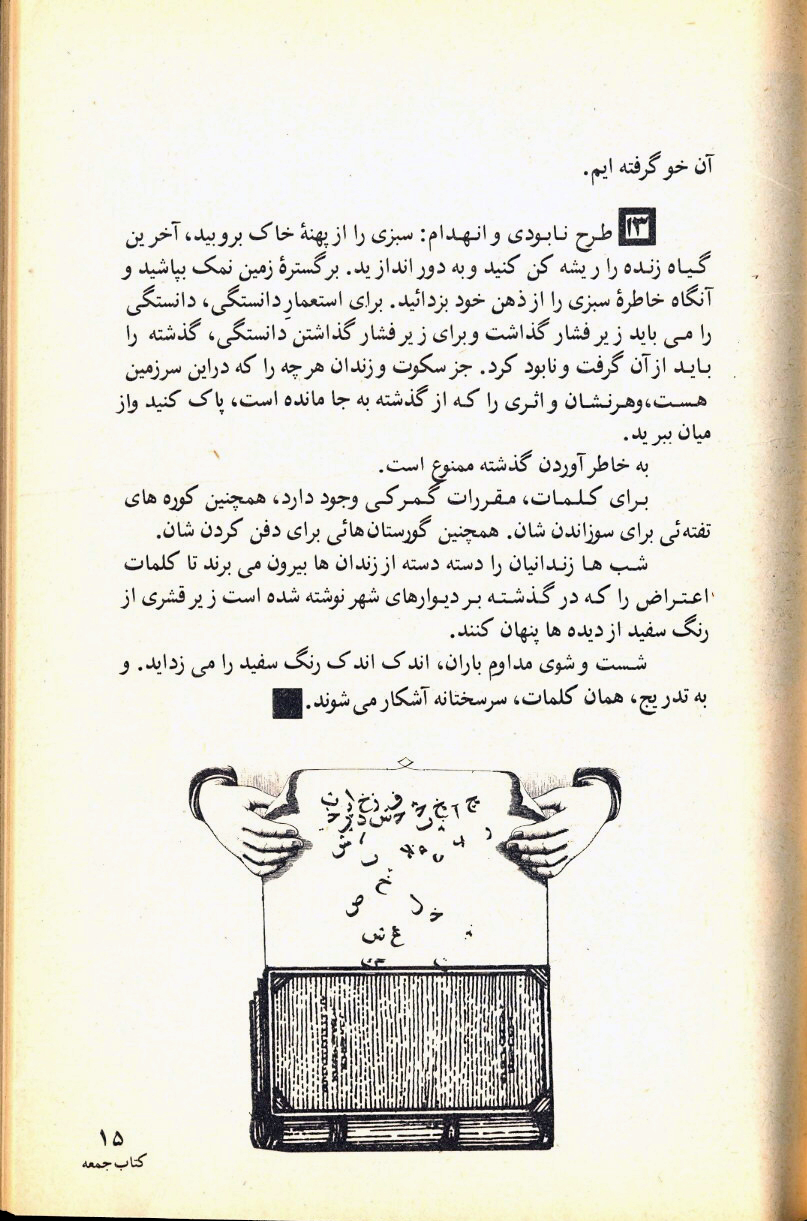 آن خو گرفته ایم.
۱۳ طرح نابودی و انهدام: سبزی را از پهنهٔ خاک بروبید، آخرین
گیاه زنده را ریشه کن کنید و به دور اندازید. بر گسترهٔ زمین نمک بپاشید و
آنگاه خاطرهٔ سبزی را از ذهن خود بزدائید. برای استعمارِ دانستگی، دانستگی
را می باید زیر فشار گذاشت و برای زیر فشار گذاشتن دانستگی، گذشته را
باید از آن گرفت و نابود کرد. جز سکوت و زندان هر چه را که دراین سرزمین
هست،وهرنشان و اثری را که از گذشته به جا مانده است، پاک کنید واز
میان ببرید.
به خاطر آوردن گذشته ممنوع است.
برای کلمات، مقررات گمرکی وجود دارد، همچنین کوره های
تفته‌ئی برای سوزاندن شان. همچنین گورستان‌هائی برای دفن کردن شان.
شب ها زندانیان را دسته دسته از زندان ها بیرون می برند تا کلمات
اعتراض را که در گذشته بر دیوارهای شهر نوشته شده است زیر قشری از
رنگ سفید از دیده ها پنهان کنند.
شست و شوی مداوم باران، اندک اندک رنگ سفید را می زداید. و
به تدریج، همان کلمات، سرسختانه آشکار می شوند.
۱۵
کتاب جمعه